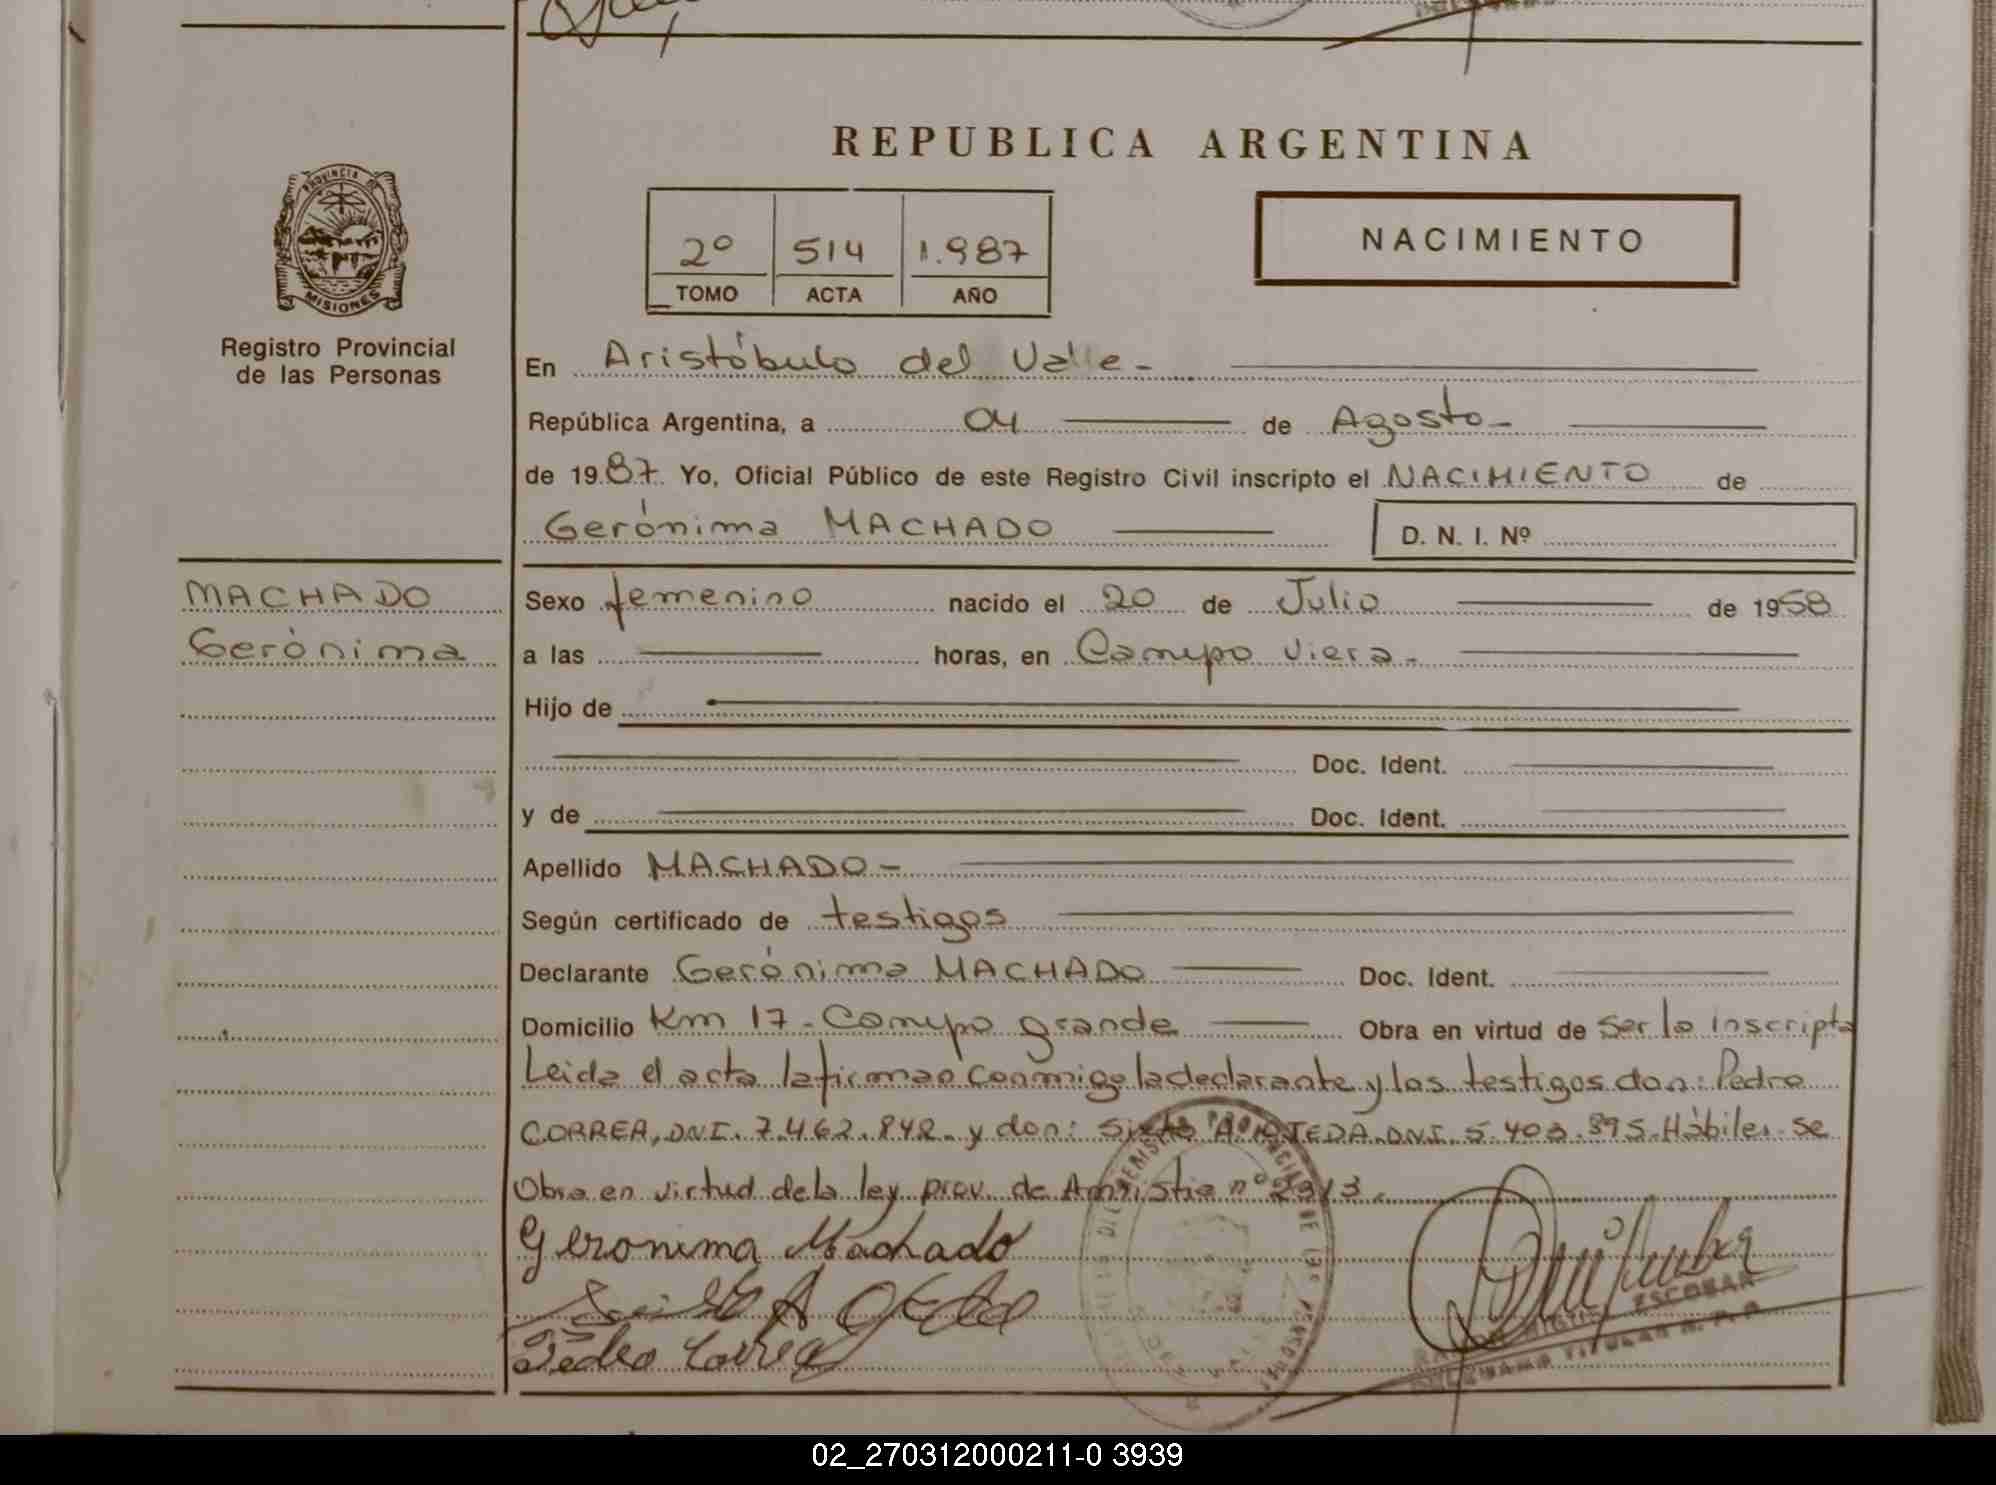 REPUBLICA ARGENTINA
PROVINCIA DE
MISIONES
Registro Provincial
de las Personas
2º 514 1.987
TOMO ACTA AÑO
NACIMIENTO
En Aristóbulo del Valle -
República Argentina, a 04 de Agosto -
de 1987. Yo, Oficial Público de este Registro Civil inscripto el NACIMIENTO de
Gerónima MACHADO D. N. I. Nº
MACHADO
Gerónima
Sexo femenino nacido el 20 de Julio de 1958
a las horas, en Campo Viera -
Hijo de
Doc. Ident.
y de Doc. Ident.
Apellido MACHADO -
Según certificado de testigos
Declarante Gerónima MACHADO Doc. Ident.
Domicilio Km 17 - Campo grande Obra en virtud de ser la inscripta
Leida el acta la firman conmigo la declarante y los testigos don: Pedro
CORREA, DNI. 7.462.842. y don: Sixto A. OJEDA. DNI. 5.403.895. Hábiles. Se
Obra en virtud de la ley prov. de Amnistia nº 2913.
Geronima Machado
Sixto A Ojeda
Pedro Correa
ESCOBAR
TITULAR R. P. P.
02_270312000211-0 3939